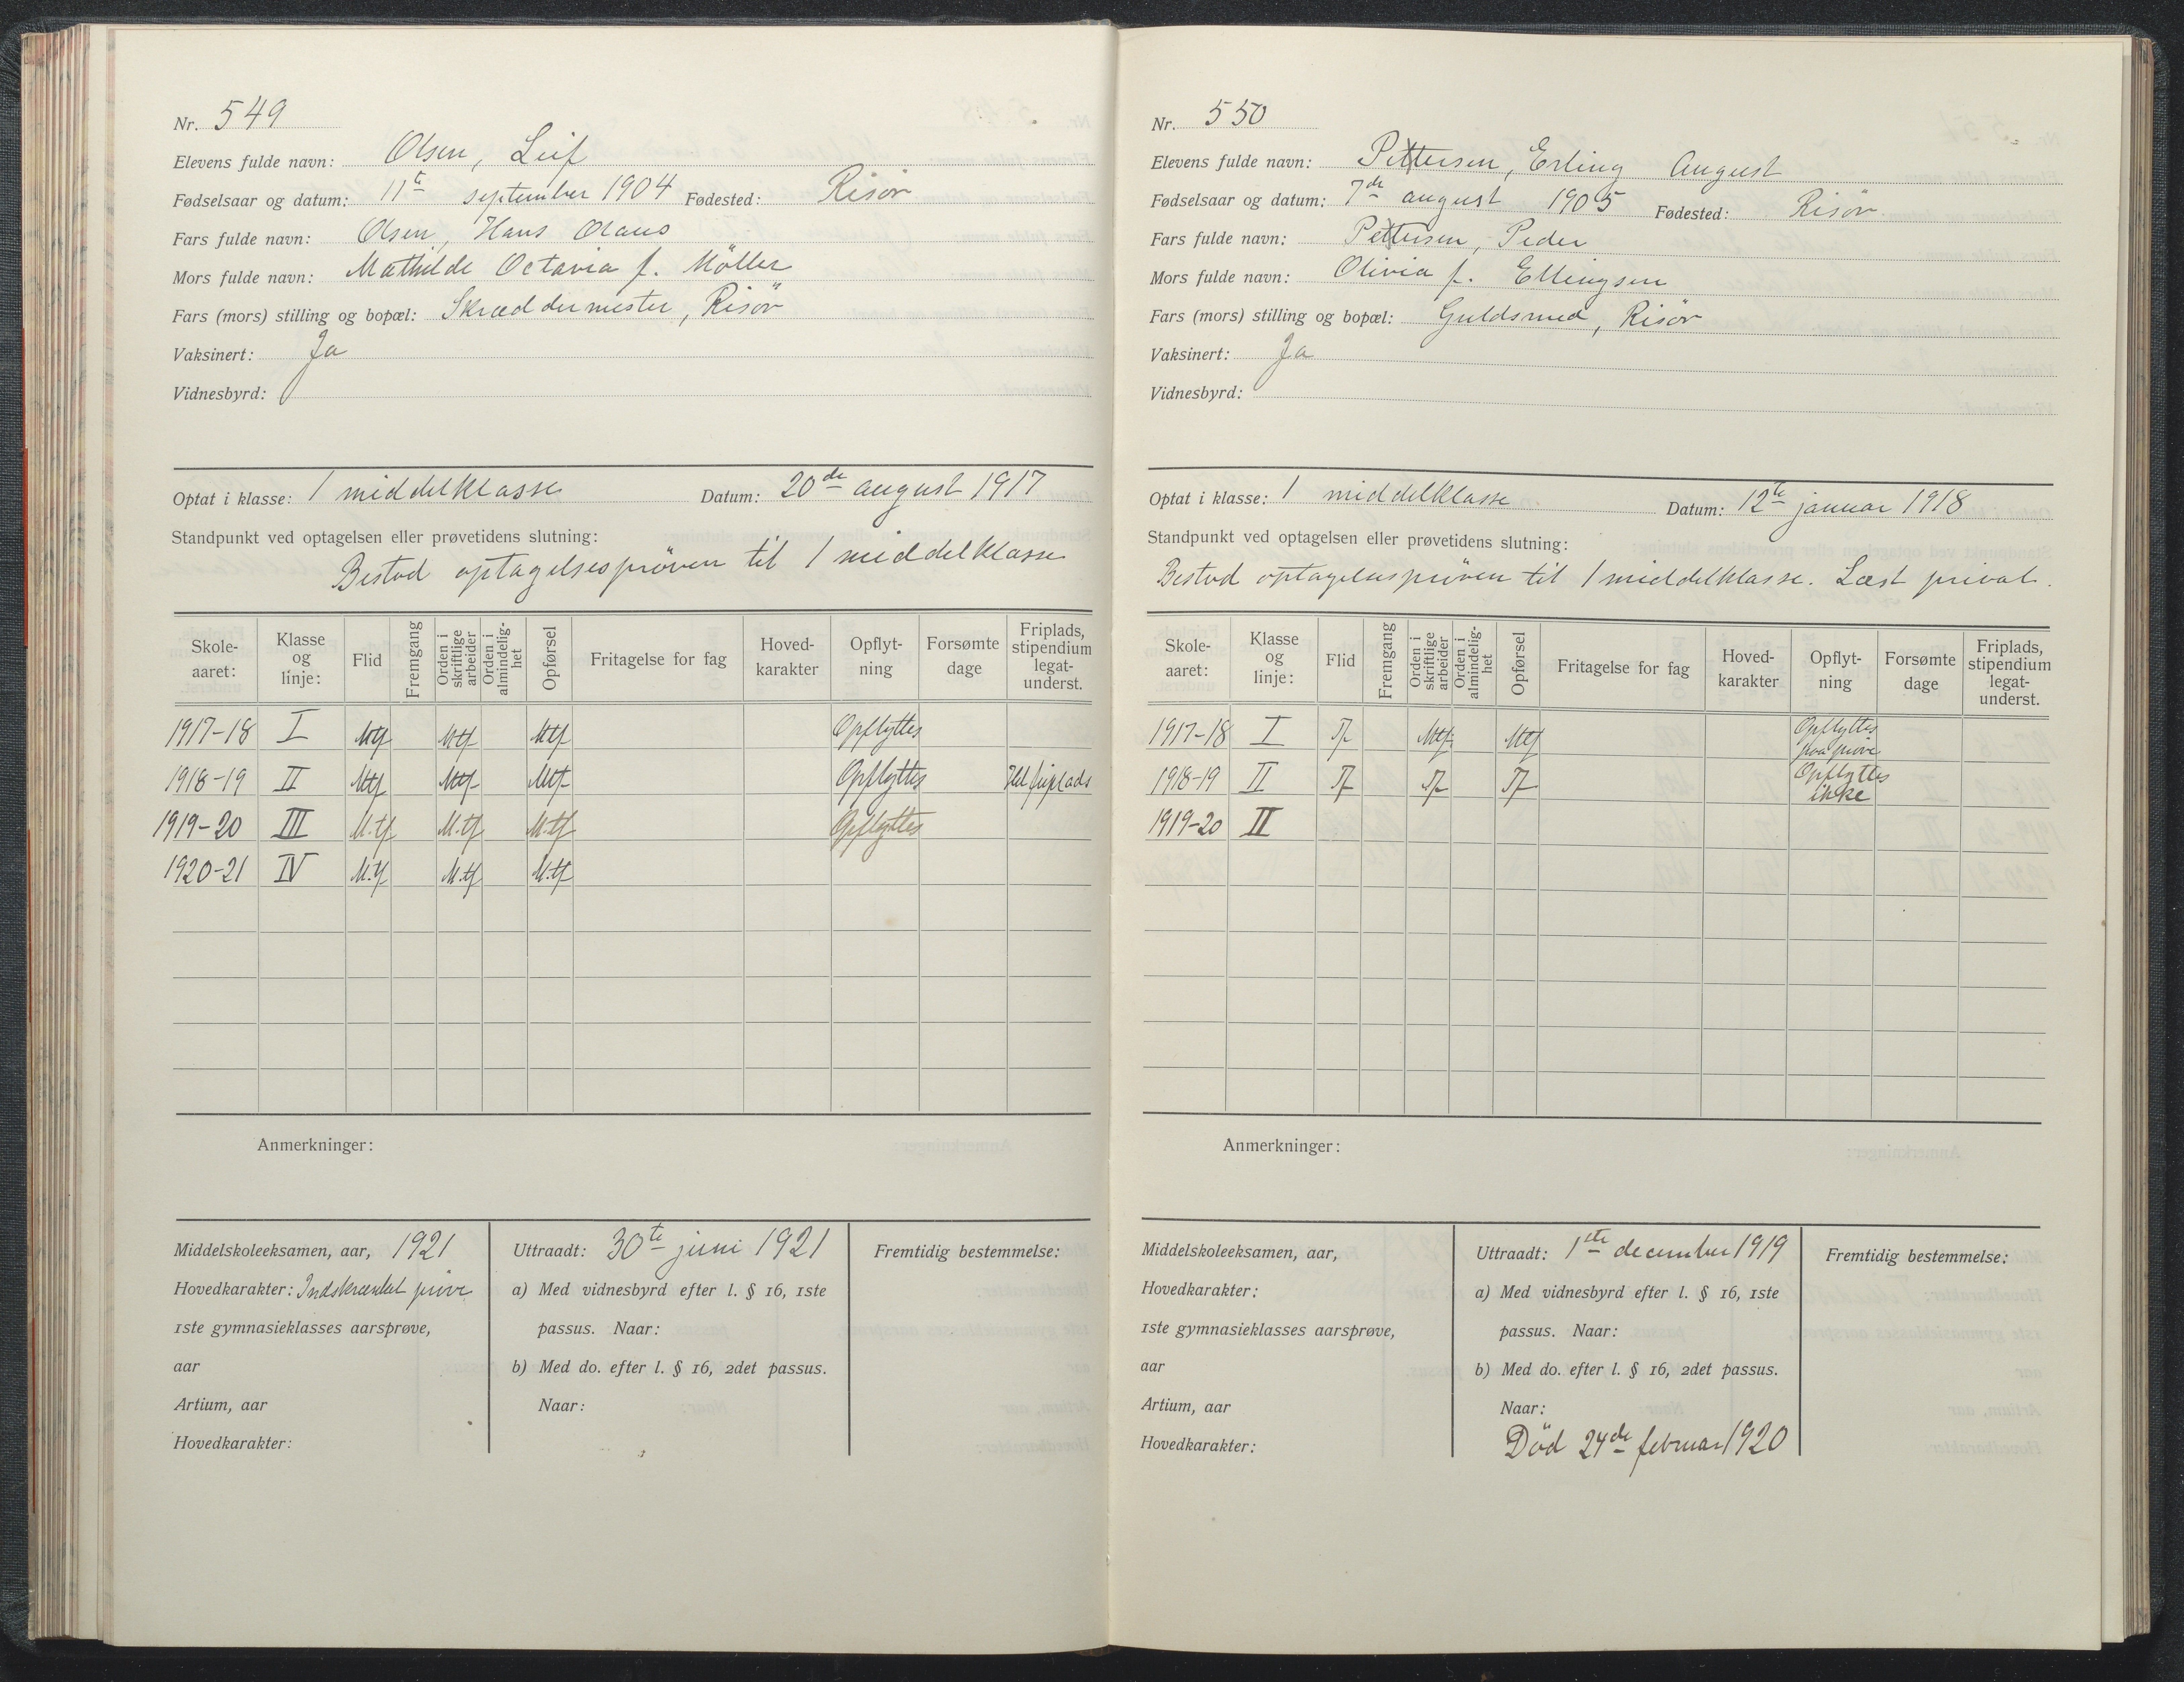 Nr. 549
Elevens fulde navn: Olsen, Leif
Fødselsaar og datum: 11te september 1904 Fødested: Risör
Fars fulde navn: Olsen, Hans Olaus
Mors fulde navn: Mathilde Octavia f. Möller
Fars (mors) stilling og bopæl: Skræddermester, Risör
Vaksinert: Ja
Vidnesbyrd:
Optat i klasse: 1 middelklasse Datum: 20de august 1917
Standpunkt ved optagelsen eller prøvetidens slutning:
Bestod optagelsespröven til 1 middelklasse
Skole-aaret: Klasse og linje: Flid Fremgang Orden i skriftlige arbeider Orden i almindelig-het Opførsel Fritagelse for fag Hoved-karakter Opflyt-ning Forsømte dage Friplads, stipendium legat-underst.
1917-18 I Mtf Mtf Mtf Opflyttes
1918-19 II Mtf Mtf Mtf Opflyttes Hel friplads
1919-20 III M.tf M.tf M.tf Opflyttes
1920-21 IV M.tf M.tf M.tf
Anmerkninger:
Middelskoleeksamen, aar, 1921
Hovedkarakter: Indskrænket pröve
1ste gymnasieklasses aarsprøve,
aar
Artium, aar
Hovedkarakter:
Uttraadt: 30te juni 1921
a) Med vidnesbyrd efter l. § 16, 1ste
passus. Naar:
b) Med do. efter l. § 16, 2det passus.
Naar:
Fremtidig bestemmelse:
Nr. 550
Elevens fulde navn: Pettersen, Erling August
Fødselsaar og datum: 7de august 1905 Fødested: Risör
Fars fulde navn: Pettersen, Peder
Mors fulde navn: Olivia f. Ellingsen
Fars (mors) stilling og bopæl: Guldsmed, Risör
Vaksinert: Ja
Vidnesbyrd:
Optat i klasse: 1 middelklasse Datum: 12te januar 1918
Standpunkt ved optagelsen eller prøvetidens slutning:
Bestod optagelsespröven til 1 middelklasse. Læst privat.
Skole-aaret: Klasse og linje: Flid Fremgang Orden i skriftlige arbeider Orden i almindelig-het Opførsel Fritagelse for fag Hoved-karakter Opflyt-ning Forsømte dage Friplads, stipendium legat-underst.
1917-18 I Tf Mtf Mtf Opflyttes paa pröve
1918-19 II Tf Tf Tf Opflyttes ikke
1919-20 II
Anmerkninger:
Middelskoleeksamen, aar,
Hovedkarakter:
1ste gymnasieklasses aarsprøve,
aar
Artium, aar
Hovedkarakter:
Uttraadt: 1ste december 1919
a) Med vidnesbyrd efter l. § 16, 1ste
passus. Naar:
b) Med do. efter l. § 16, 2det passus.
Naar:
Död 24de februar 1920
Fremtidig bestemmelse: